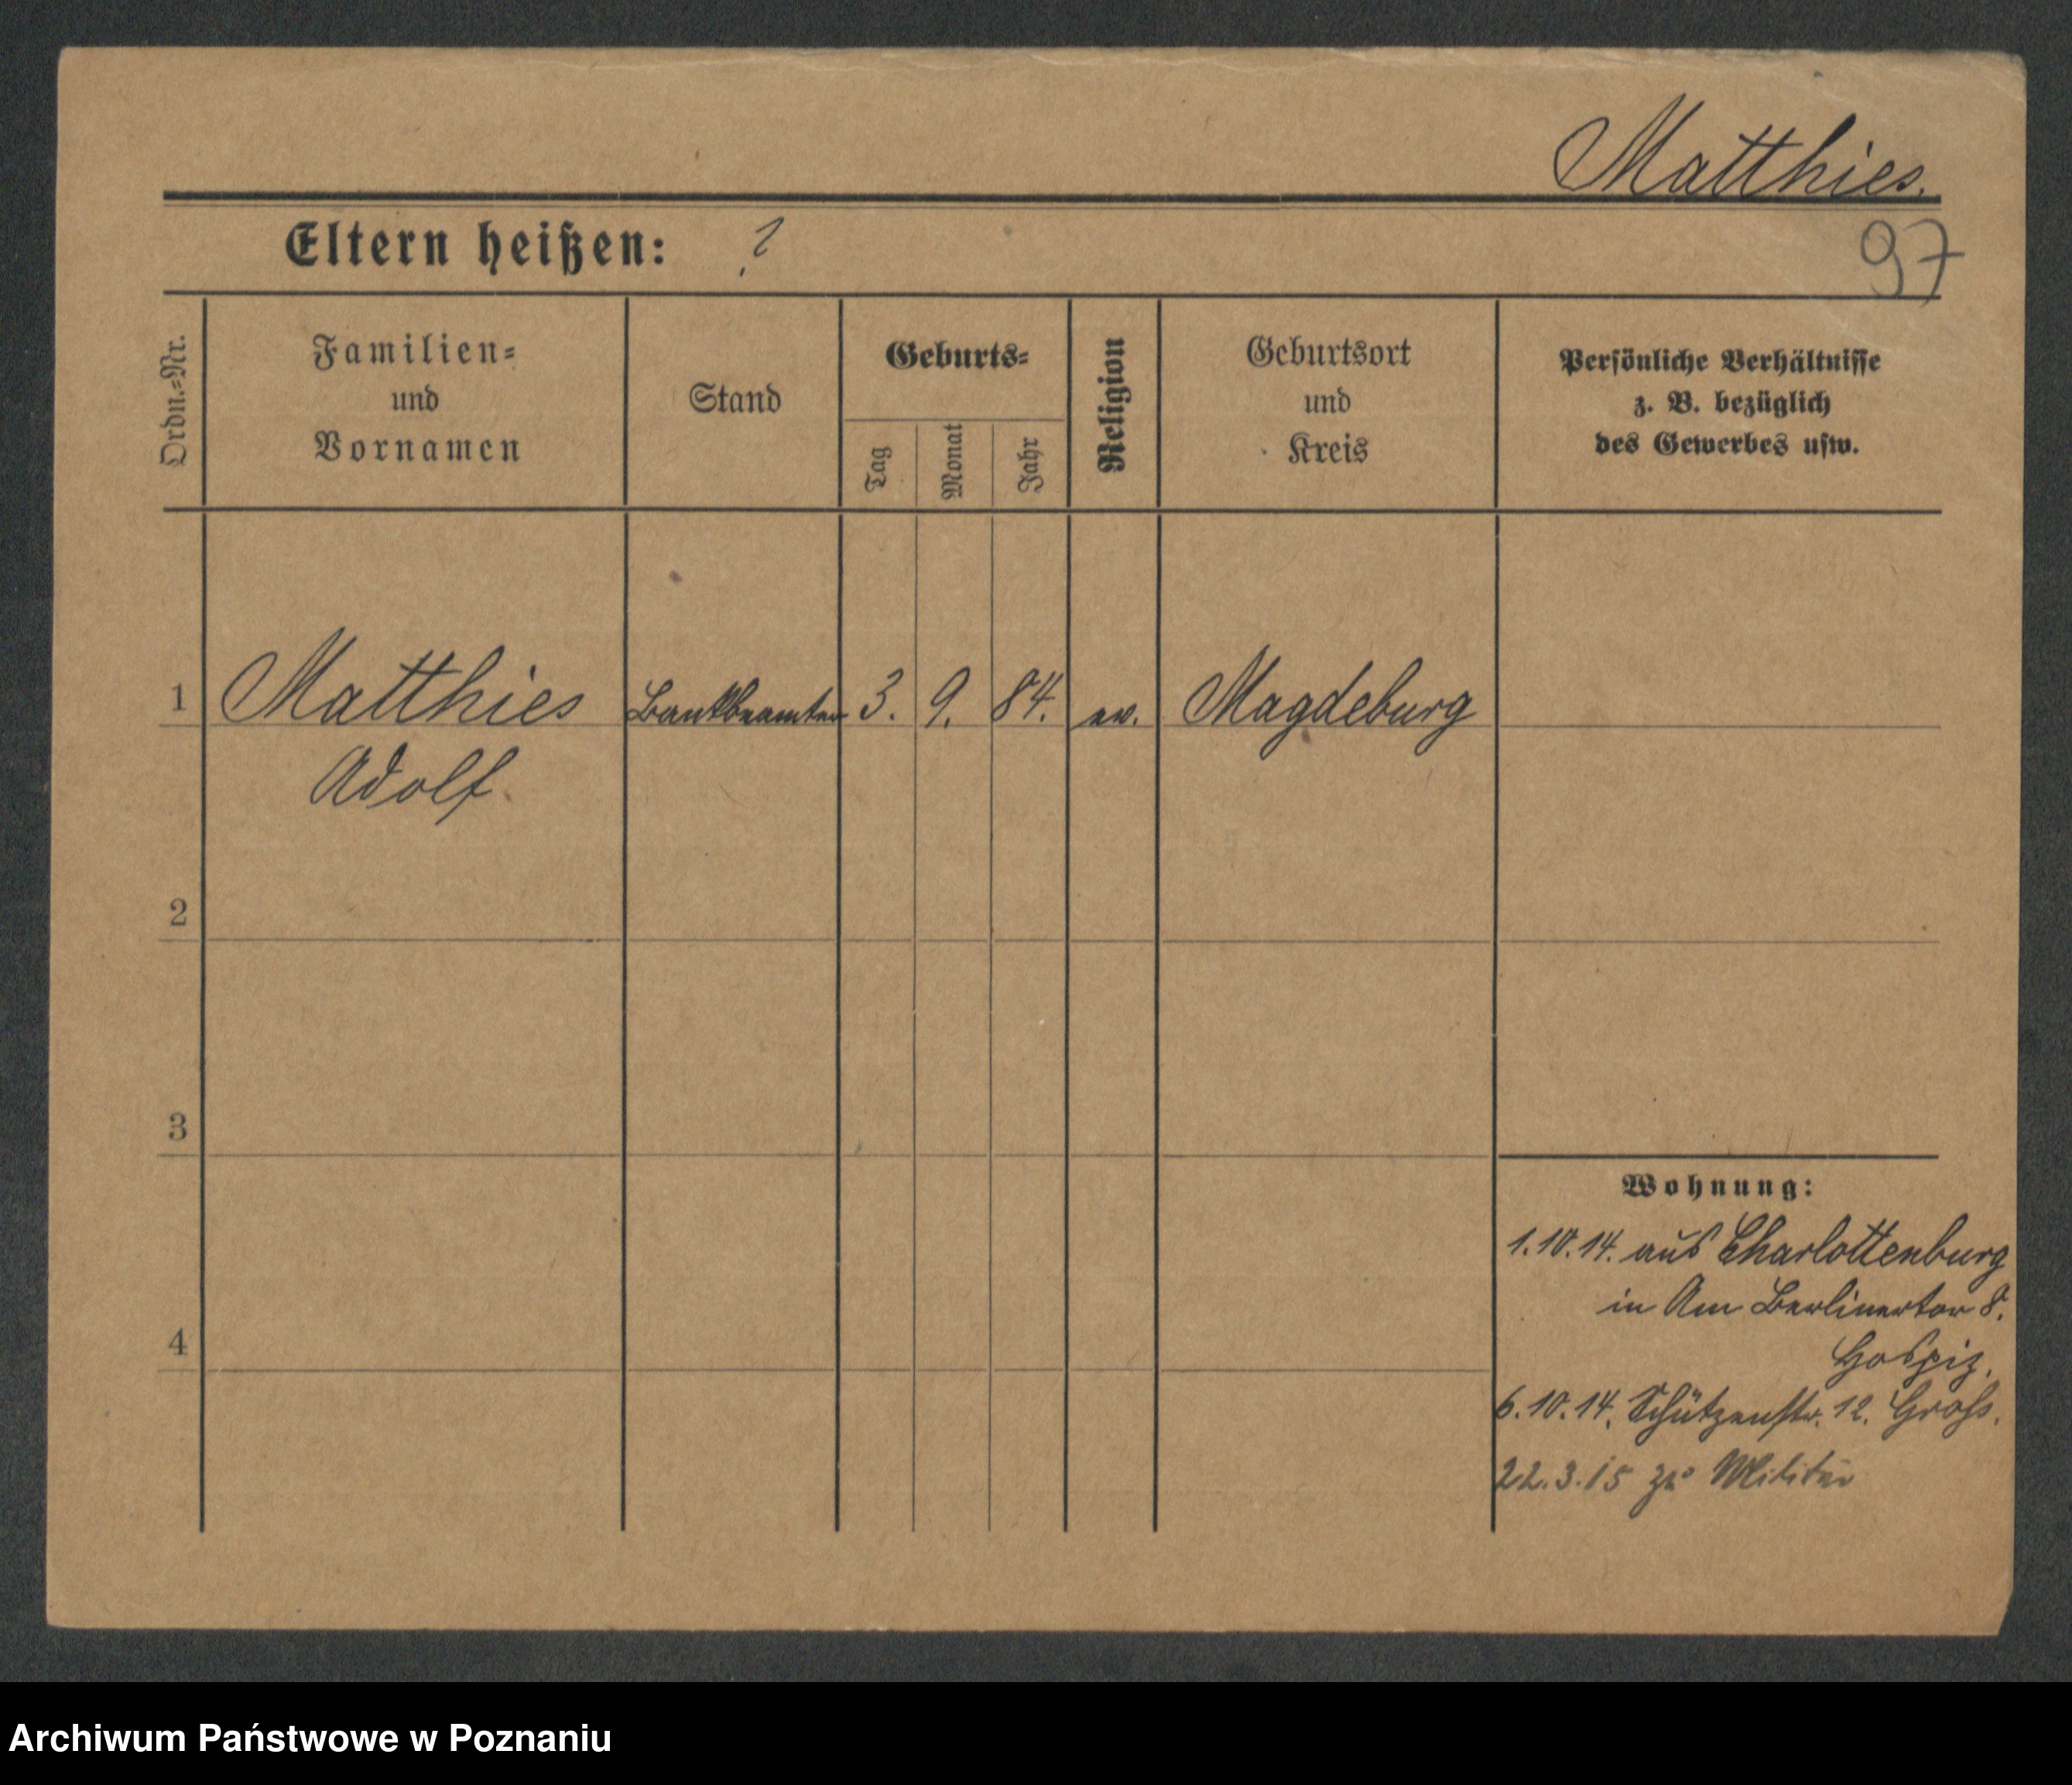 Matthies.
Eltern heißen: ?
97
Ordn.-Nr.
Familien-
und
Vornamen
Stand
Geburts-
Tag
Monat
Jahr
Religion
Geburtsort
und
Kreis
Persönliche Verhältnisse
z. B. bezüglich
des Gewerbes usw.
1 Matthies Bankbeamter 3. 9. 84. ev. Magdeburg
Adolf
2
3
4
Wohnung:
1.10.14. aus Charlottenburg
in Am Berlinertor 8.
Hospiz.
6.10.14. Schützenstr. 12. Groß.
22.3.15 zu Militär
Archiwum Państwowe w Poznaniu